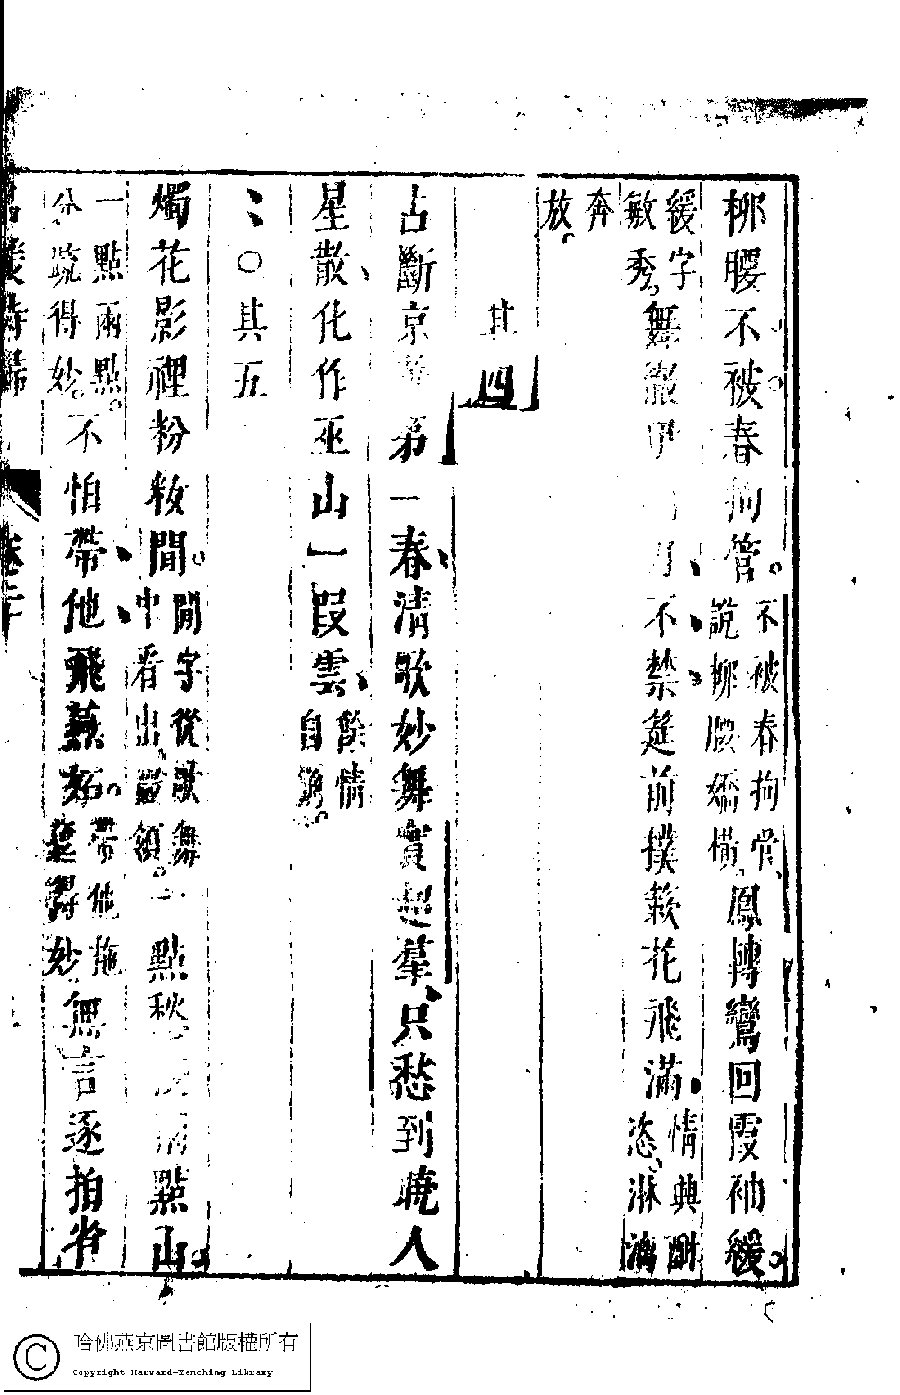 柳腰不被春拘管不被春拘管說柳腰嬌橫鳳轉鸞回霞袖緩
緩字敏秀舞徹伊 不禁筵前撲簌花飛滿情典酣恣淋漓
奔放
其四
占斷京華第一春清歌妙舞實超羣只愁到曉人
星散化作巫山一段雲餘情自
〇其五
燭花影裡粉粧閒閒字從歌舞中看出嚴領一點愁 兩點山
一點兩點分疏得妙不怕帶他飛燕妬帶他拖 得妙無言逐拍省
卷二十
哈佛燕京圖書館版權所有
Copyright Harvard-Yenching Library